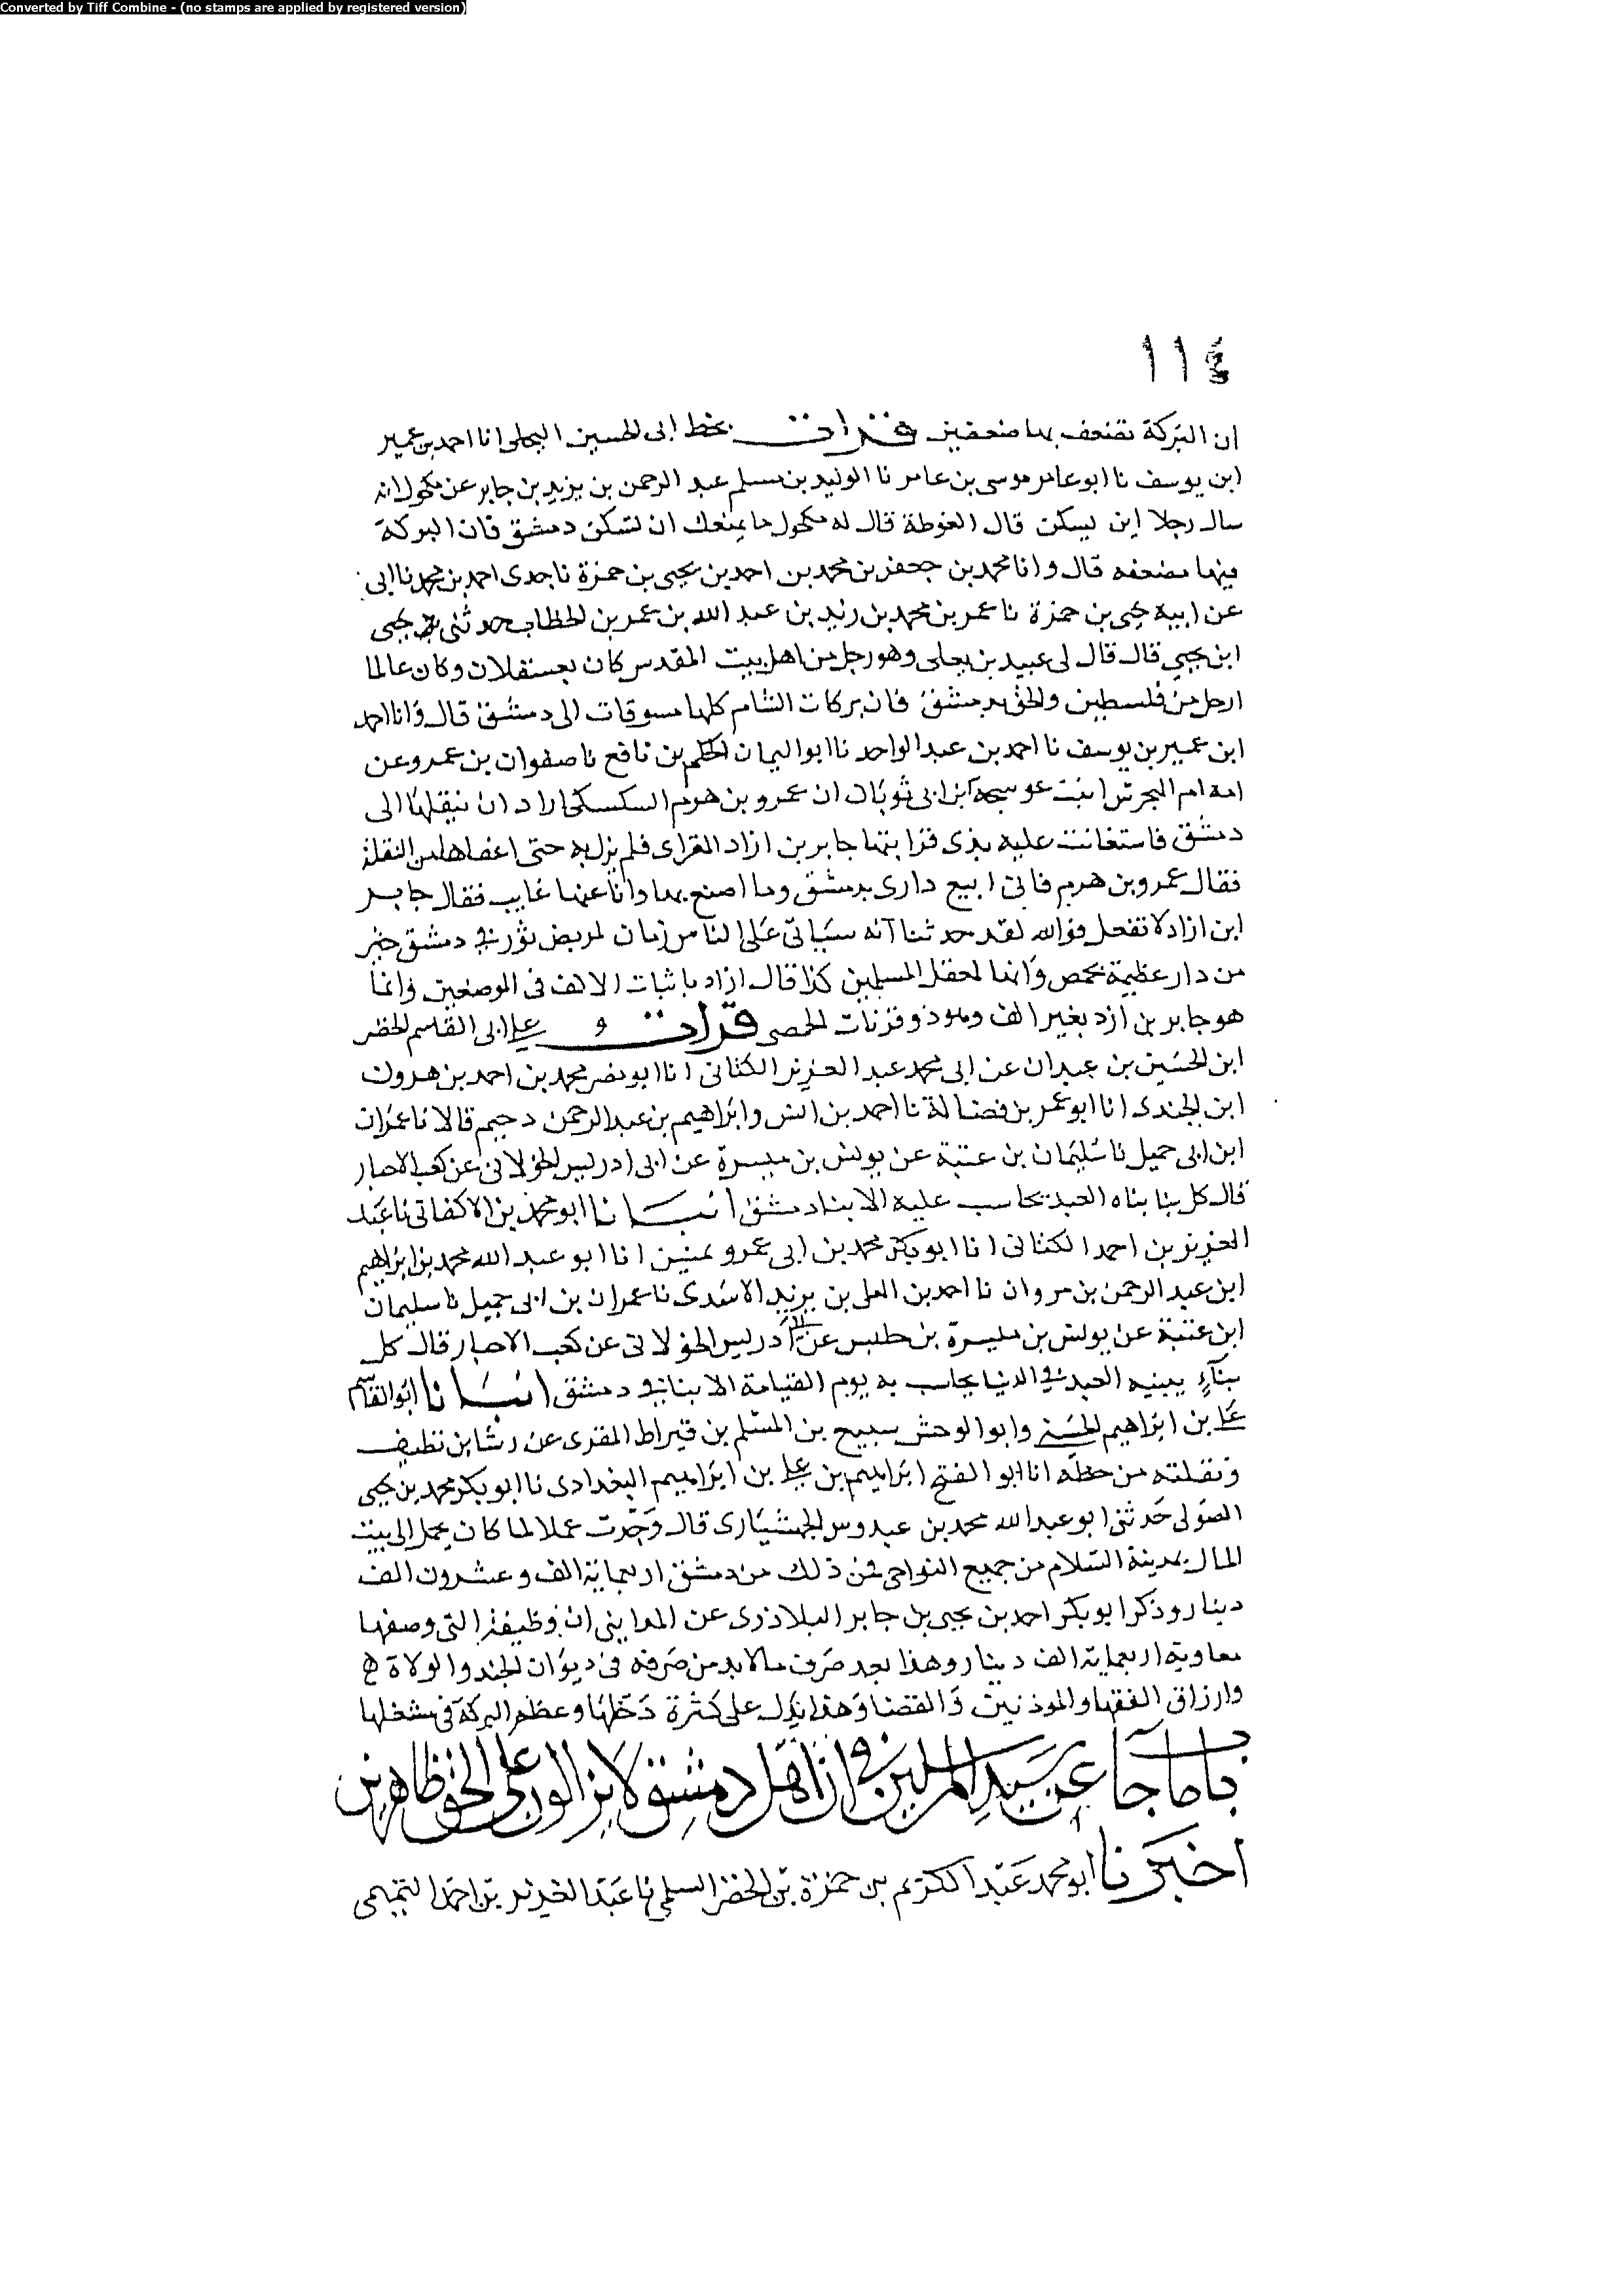 Converted by Tiff Combine - (no stamps are applied by registered version)
١١٤
ان البركة تضعف بها ضعفين قرات بخط ابى الحسين البجلى انا احمد بن عمير
ابن يوسف نا ابو عامر موسى بن عامر نا الوليد بن مسلم عبد الرحمن بن يزيد بن جابر عن مكحول انه
سال رجلا اين يسكن قال الغوطة قال له مكحول ما يمنعك ان تسكن دمشق فان البركة
فيها مضعفه قال وانا محمد بن جعفر بن محمد بن احمد بن يحيى بن حمزة نا جدى احمد بن محمد نا ابى
عن ابيه يحيى بن حمزة نا عمر بن محمد بن زيد بن عبد الله بن عمر بن الخطاب حدثنى يحيى
ابن يحيى قال قال لى عبيد بن يعلى وهو رجل من اهل بيت المقدس كان بعسقلان وكان عالما
ارحل من فلسطين والحق بدمشق فان بركات الشام كلها مسوقات الى دمشق قال وانا احمد
ابن عمير بن يوسف نا احمد بن عبد الواحد نا ابو اليمان الحكم بن نافع نا صفوان بن عمرو عن
ابنت عوسجة ابن ابى ثوبان ان عمرو بن هرم السكسكى اراد ان ينقلها الى
دمشق فاستغاثت عليه بذى قرابتها جابر بن ازاد المقراى فلم يزل به حتى اعفاها من النقلة
فقال عمرو بن هرم فانى ابيع دارى بدمشق وما اصنع بها وانا عنها غايب فقال جابر
ابن ازاد لا تفعل فوالله لقد حدثنا انه سياتى على الناس زمان لمربض ثور فى دمشق خير
من دار عظيمة بحمص وانها لمعقل المسلمين كذا قال ازاد باثبات الالف فى الموضعين وانما
هو جابر بن ازد بغير الف وهو ذو قرنات الحمصى قرات على ابى القاسم الخضر
ابن الحسين بن عبدان عن ابى محمد عبد العزيز الكنانى انا ابو نصر محمد بن احمد بن هرون
ابن الجندى انا ابو عمر بن فضالة نا احمد بن انس وابراهيم بن عبد الرحمن دحيم قالا نا عمران
ابن ابى جميل نا سليمان بن عتبة عن يونس بن ميسرة عن ابى ادريس الخولانى عن كعب الاحبار
قال كل بنا بناه العبد يحاسب عليه الا بنا دمشق انبا نا ابو محمد بن الاكفانى نا عبد
العزيز بن احمد الكنانى انا ابو بكر محمد بن ابى عمرو انا ابو عبد الله محمد بن ابراهيم
ابن عبد الرحمن بن مروان نا احمد بن المعلى بن يزيد الاسدى نا عمران بن ابى جميل نا سليمان
ابن عتبة عن يونس بن ميسرة بن حلبس عن ابى ادريس الخولانى عن كعب الاحبار قال كل
بنآء يبنيه العبد فى الدنيا يحاسب به يوم القيامة الا بنا فى دمشق انبا نا ابو القاسم
على بن ابراهيم الحسينى وابو الوحش سبيع بن المسلم بن قيراط المقرى عن رشا بن نظيف
ونقلته من خطه انا ابو الفتح ابراهيم بن على بن ابراهيم البغدادى نا ابو بكر محمد بن يحيى
الصولى حدثنى ابو عبد الله محمد بن عبدوس الجهشيارى قال وجدت عملا لما كان يحمل الى بيت
المال بمدينة السلام من جميع النواحى فمن ذلك من دمشق اربعماية الف وعشرون الف
دينار وذكر ابو بكر احمد بن يحيى بن جابر البلاذرى عن المداينى ان وظيفة التى وصفها
معاوية اربعماية الف دينار وهذا بعد صرف مالابد من صرفه فى ديوان الجند والولاة
وارزاق الفقها والموذنين والقضا وهذا يدل على كثرة دخلها وعظم البركة فى مشغلها
باب ما جا عن سيد المرسلين فى ان اهل دمشق لا يزالون على الحق ظاهرين
اخبرنا ابو محمد عبد الكريم بن حمزة بن الخضر السلمى نا عبد العزيز بن احمد التميمى